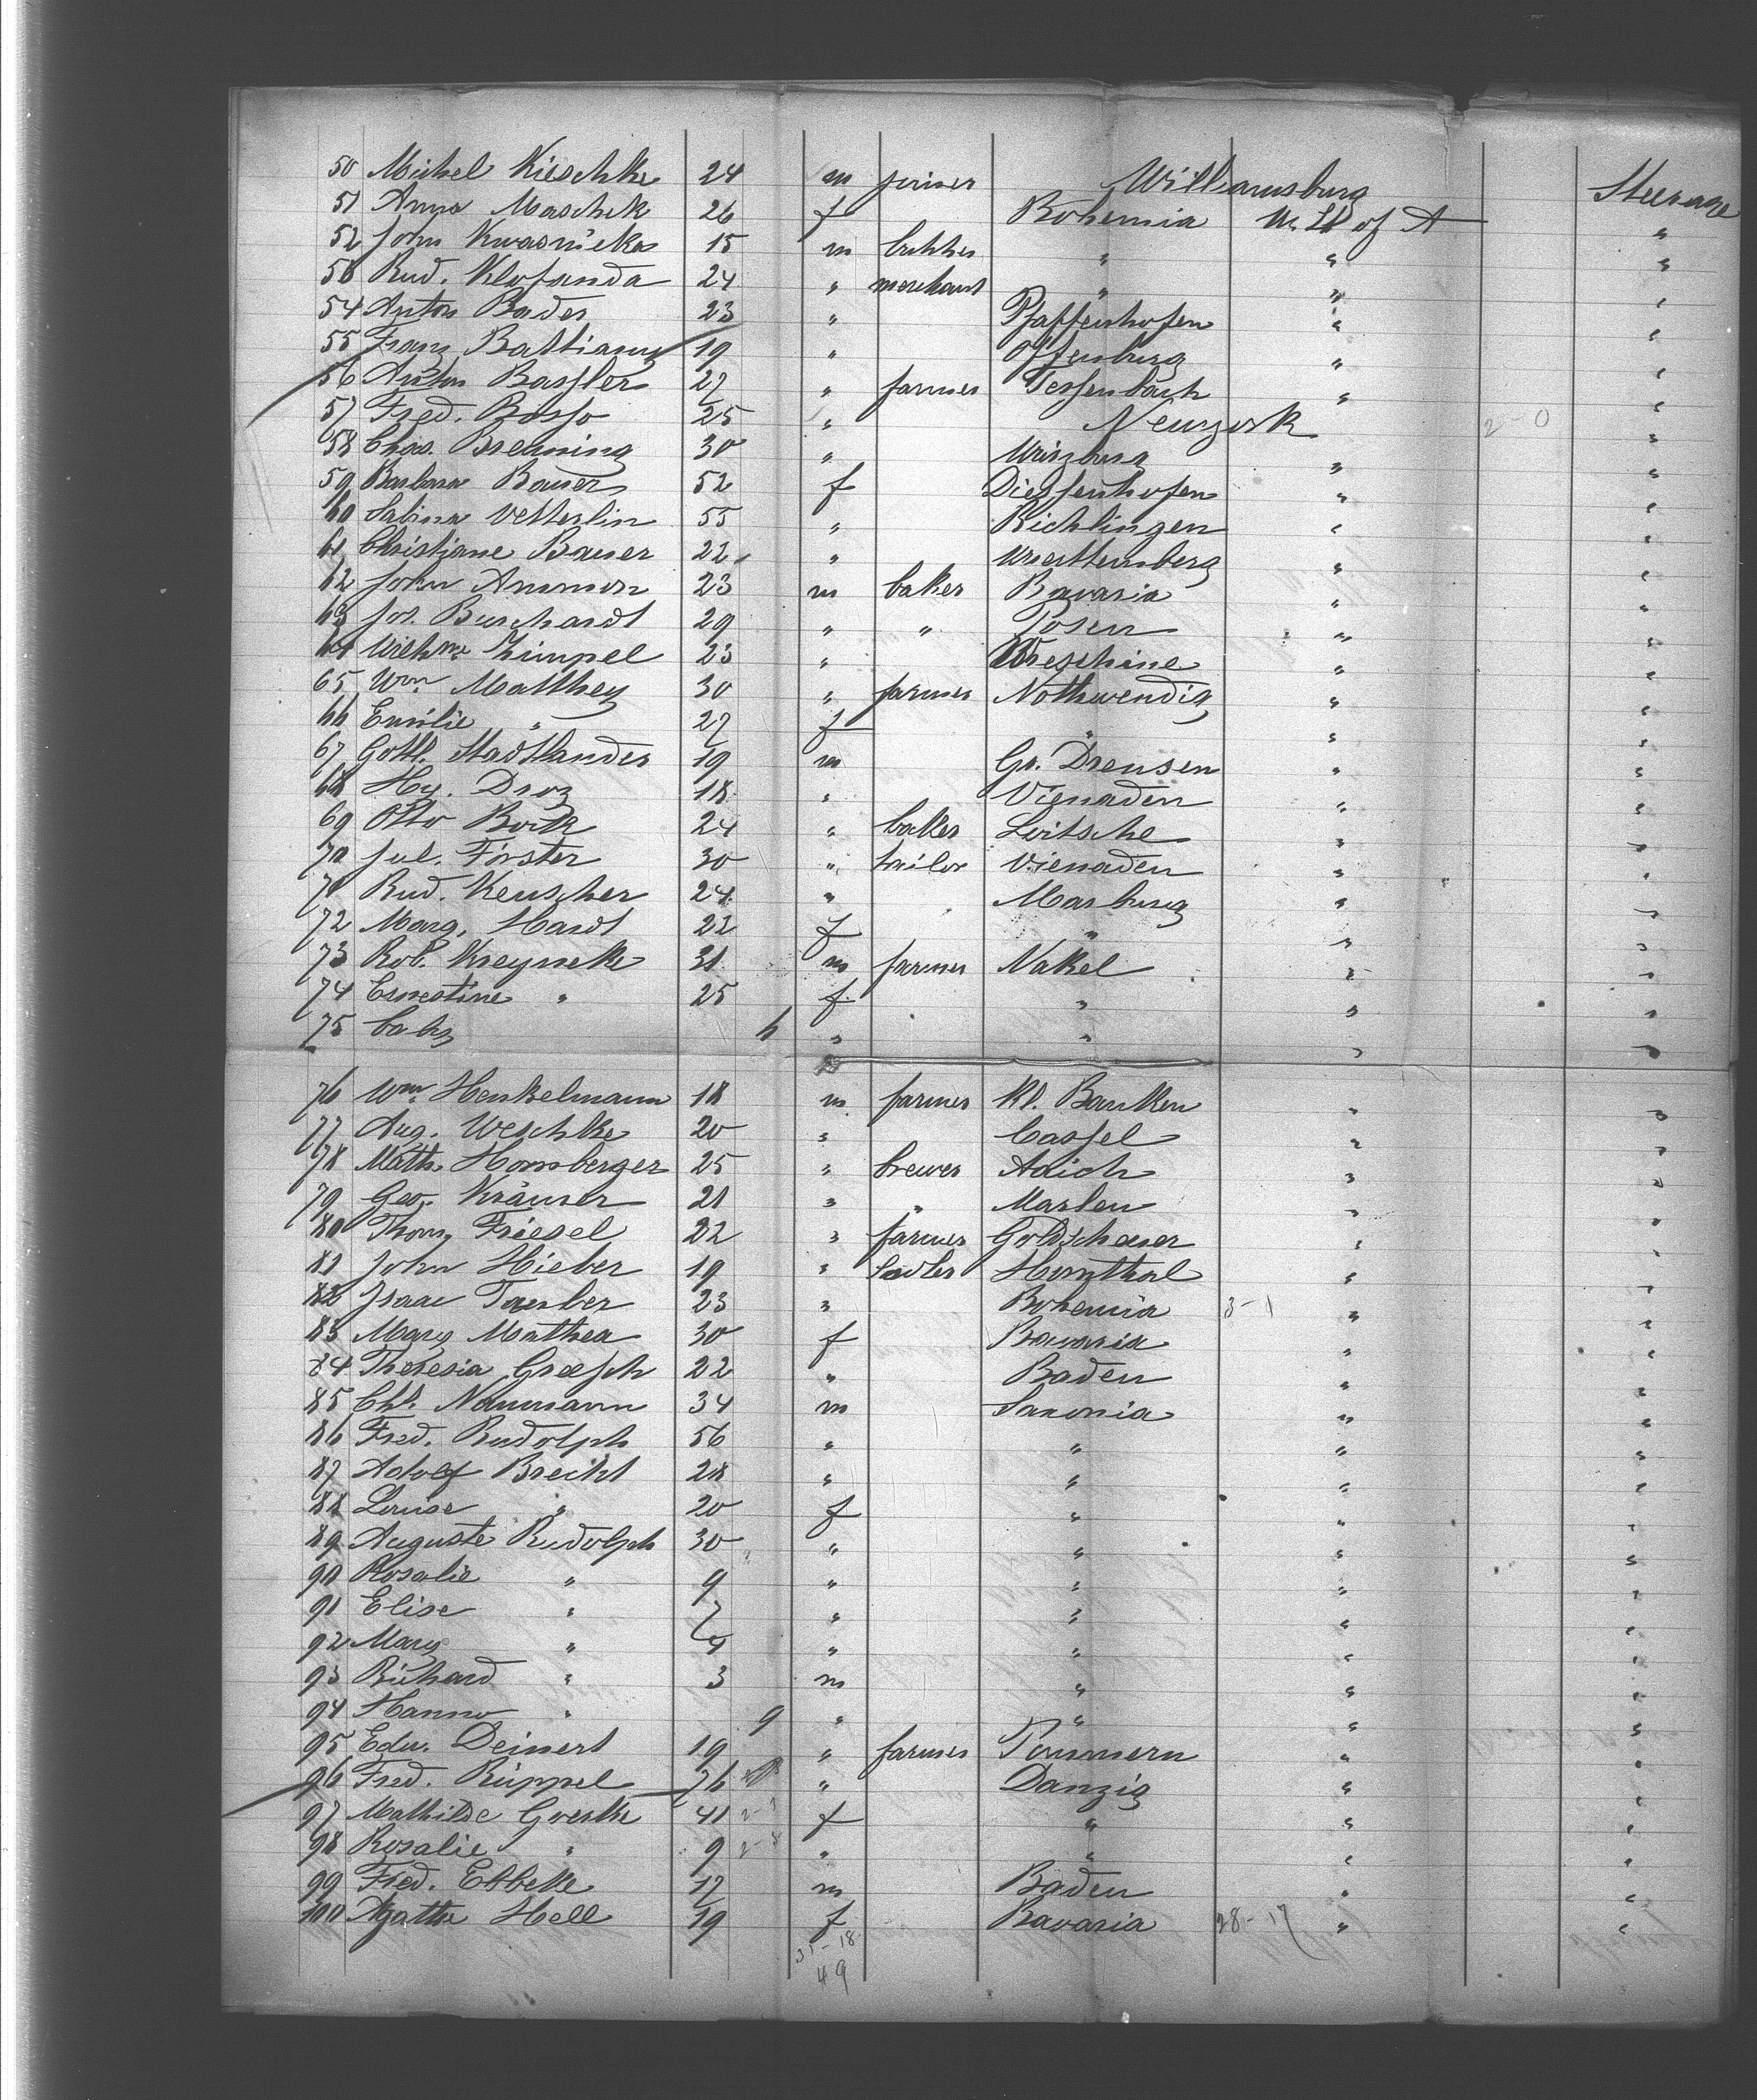 50 Michel Kieschke 24 m joiner Williamsburg Steerage
51 Anna Maschek 26 f Bohemia U. St of A "
52 John Kwasnicka 15 m butcher " " "
53 Rud. Klofanda 24 " merchant " " "
54 Anton Bader 23 " Pfaffenhofen " "
55 Franz Battiany 19 " Offenburg " "
56 Anton Bassler 27 " farmer Tessenbach " "
57 Fred. Bosso 25 " Newyork 2-0 "
58 Chas. Breuning 30 " Würzburg " "
59 Barbara Bauer 52 f Diessenhofen " "
60 Sabina Vetterlin 55 " Richlingen " "
61 Christiane Bauer 22 " Wuerttemberg " "
62 John Ammon 23 m baker Bavaria " "
63 Jos. Burchardt 29 " " Posen " "
64 Wilhm. Zimpel 23 " Wreschine " "
65 Wm. Matthey 30 " farmer Nothwendig " "
66 Emilie " 27 f " " "
67 Gottl. Stadtlander 19 m Gr. Drensen " "
68 Hy. Droz 18 " Vienaden " "
69 Otto Bock 24 " baker Loitsche " "
70 Jul. Förster 30 " tailor Vienaden " "
71 Rud. Keuscher 24 " Marburg " "
72 Marg. Hardt 22 f " " "
73 Rob. Kreyneke 31 m farmer Nakel " "
74 Ernestine " 25 f " " "
75 baby h " " " "
76 Wm. Henkelmann 18 m farmer Kl. Bauken " "
77 Aug. Weschke 20 " Cassel " "
78 Math. Hornberger 25 " brewer Aaich " "
79 Geo. Krämer 21 " " Marlen " "
80 Thom. Friesel 22 " farmer Goldscheuer " "
81 John Hieber 19 " Sadler Hurnthal " "
82 Isaac Tauber 23 " Bohemia 3-1 " "
83 Mary Mathea 30 f Bavaria " "
84 Theresia Groesch 22 " Baden " "
85 Chr. Naumann 34 m Saxonia " "
86 Fred. Rudolph 56 " " " "
87 Adolf Brecht 28 " " " "
88 Louise " 20 f " " "
89 Auguste Rudolph 30 " " " "
90 Rosalie " 9 " " " "
91 Elise " 7 " " " "
92 Mary " 4 " " " "
93 Richard " 3 m " " "
94 Hanno " 9 " " " "
95 Edw. Deinert 19 " farmer Pommern " "
96 Fred. Rüppel 76 " Danzig " "
97 Mathilde Goerke 41 f " " "
98 Rosalie " 9 " " " "
99 Fred. Ebbeke 17 m Baden " "
100 Agathe Hell 19 f Bavaria 28-17 " "
31-18
49